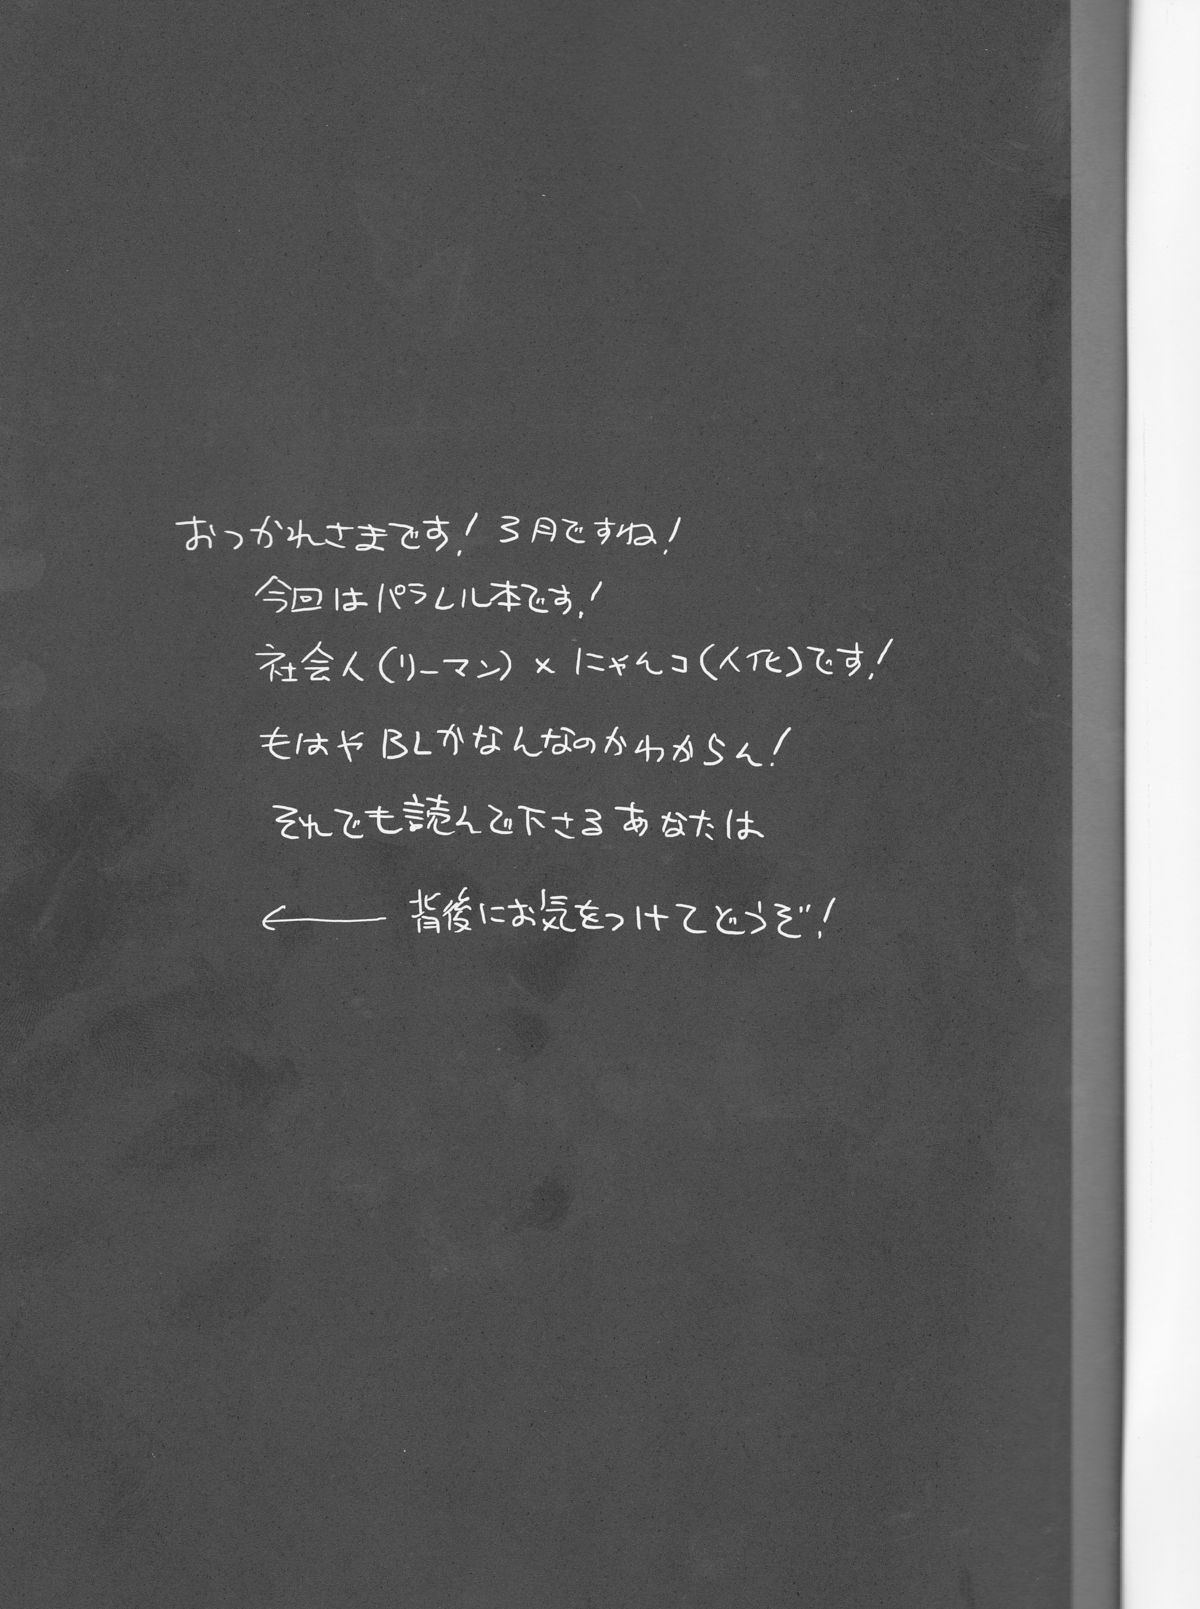 おつかれさまです! 3月ですね!
今回はパラレル本です!
社会人(リーマン)×にゃんコ(人化)です!
もはやBLかなんなのかわからん!
それでも読んで下さるあなたは
← 背後にお気をつけてどうぞ!